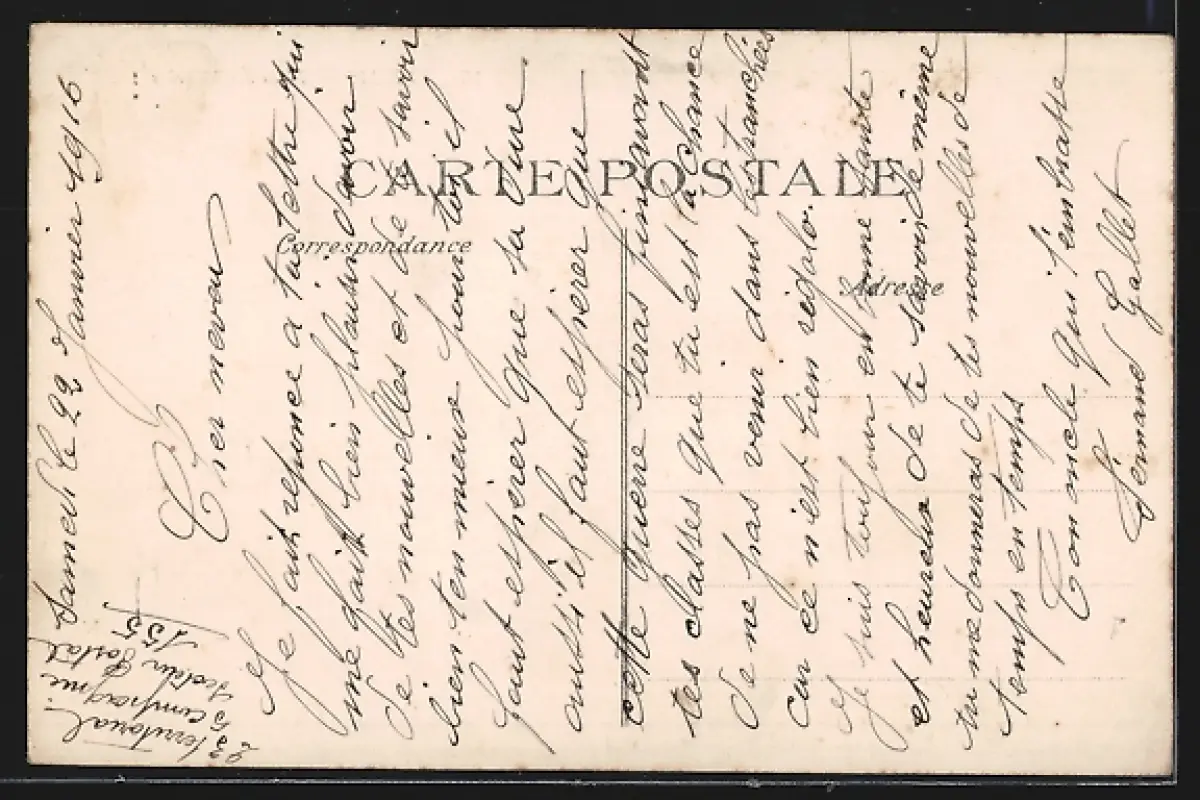 CARTE POSTALE
Correspondance
Adresse
Samedi le 22 Janvier 1916
Territorial
23
5 Compagnie
Secteur Postal
155
Cher neveu
Je fait réponce a ta lettre qui
me fait bien plaisir davoir
de tes nouvelles et de te savoir
bien ten mieux pour toi il
faut espérer que sa dure
aussi il faut espérer que
cette guerre seras fini avant
tes classes que tu est la chance
de ne pas venir dans les tranchées
car ce n'est bien rigolo.
Je suis toujour en bonne santé
et heureux de te savoir de même
tu me donneras de tes nouvelles de
temps en temps
Ton oncle qui t'embrasse
Fernand Gallet